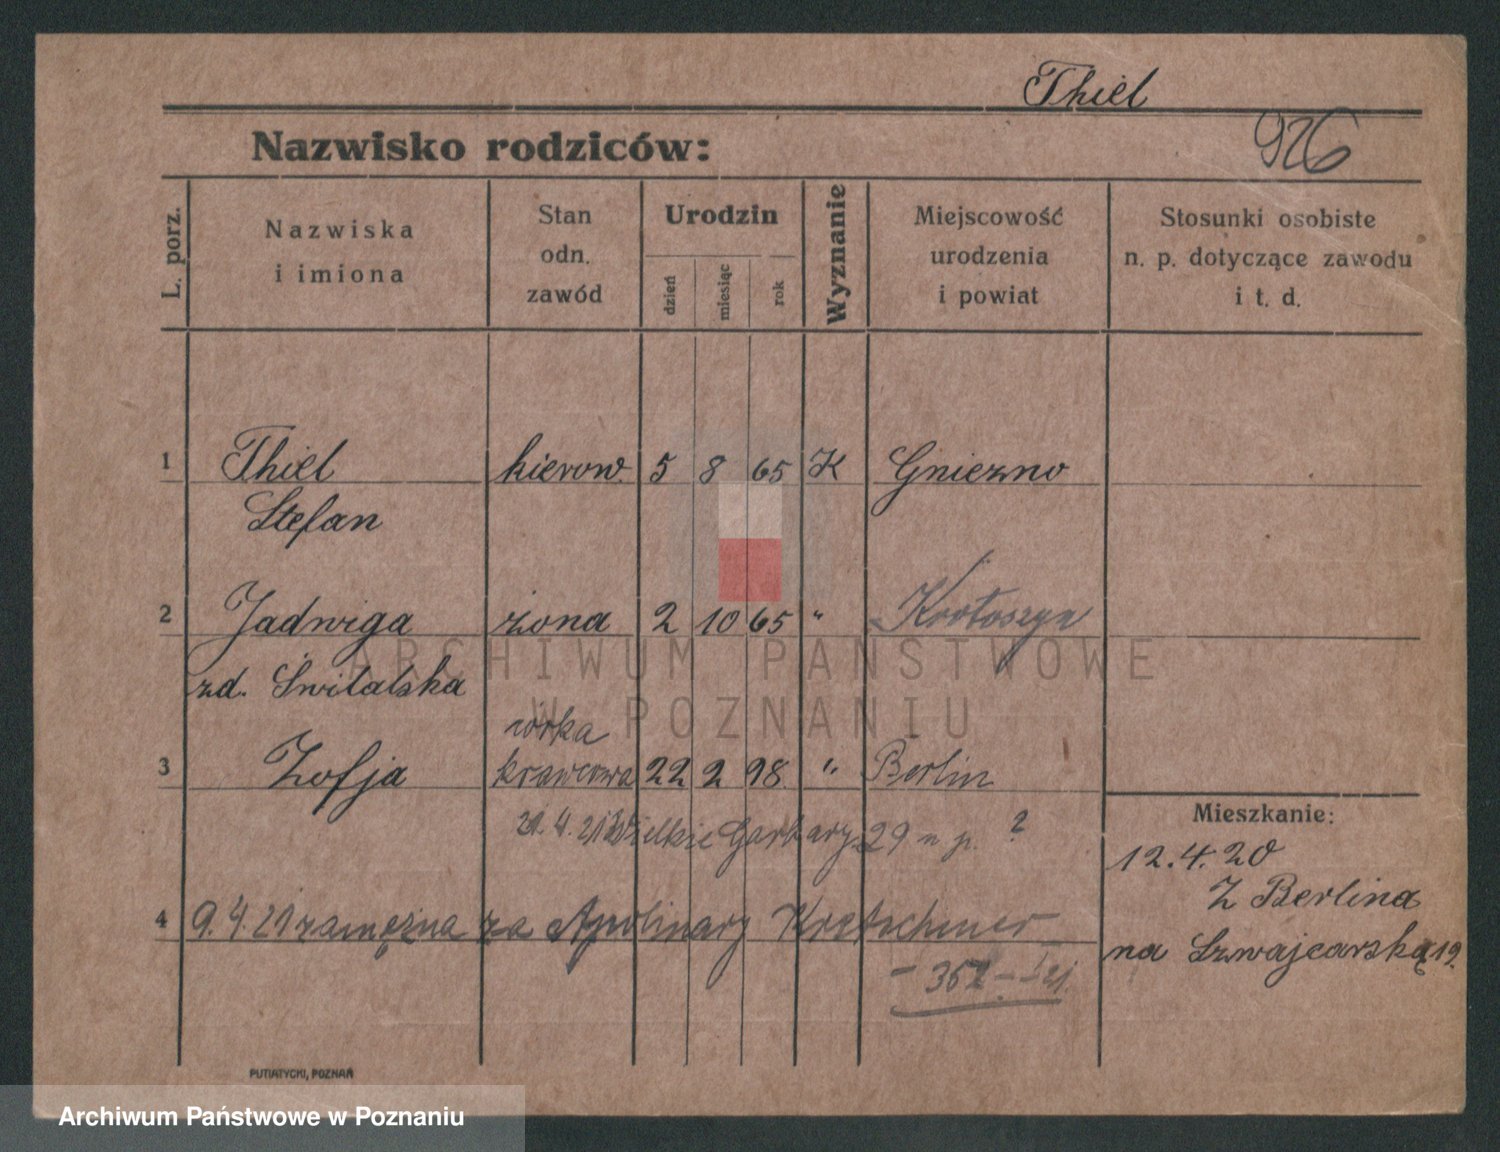 Thiel
Nazwisko rodziców:
926
L. porz.
Nazwiska
i imiona
Stan
odn.
zawód
Urodzin
dzień
miesiąc
rok
Wyznanie
Miejscowość
urodzenia
i powiat
Stosunki osobiste
n. p. dotyczące zawodu
i t. d.
1 Thiel kierow. 5 8 65 K Gniezno
Stefan
2 Jadwiga żona 2 10 65 " Krotoszyn
zd. Świtalska
córka
3 Zofja krawcowa 22 2 98 " Berlin
21.4.21 Wielkie Garbary 29 n p. ?
Mieszkanie:
12.4.20
Z Berlina
na Szwajcarską 19.
4 9.4.21 zamężna za Apolinary Kretschmer
- 362 - I 21.
PUTIATYCKI, POZNAŃ
ARCHIWUM PAŃSTWOWE
W POZNANIU
Archiwum Państwowe w Poznaniu